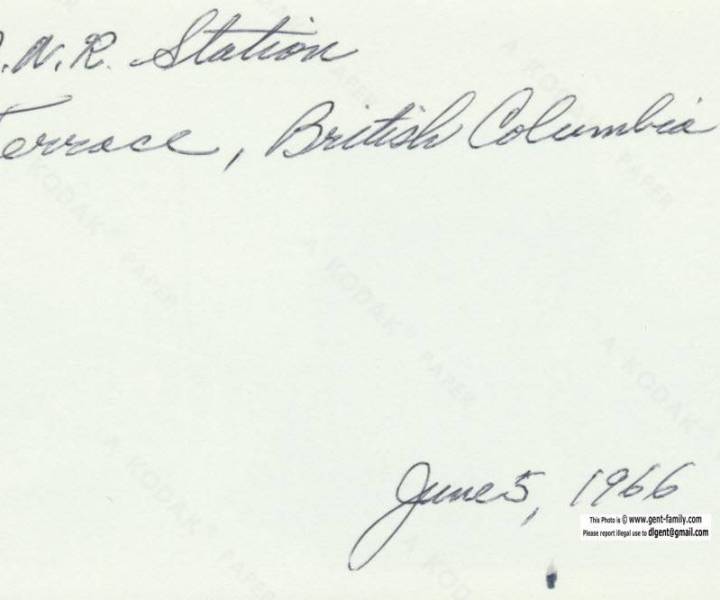 .N.R. Station
Terrace, British Columbia
A KODAK PAPER
A KODAK PAPER
A KODAK PAPER
A KODAK PAPER
A KODAK
June 5, 1966
This Photo is © www.gent-family.com
Please report illegal use to digent@gmail.com